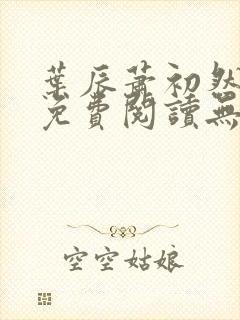 葉辰蕭初然
免費閱讀無
空空姑娘